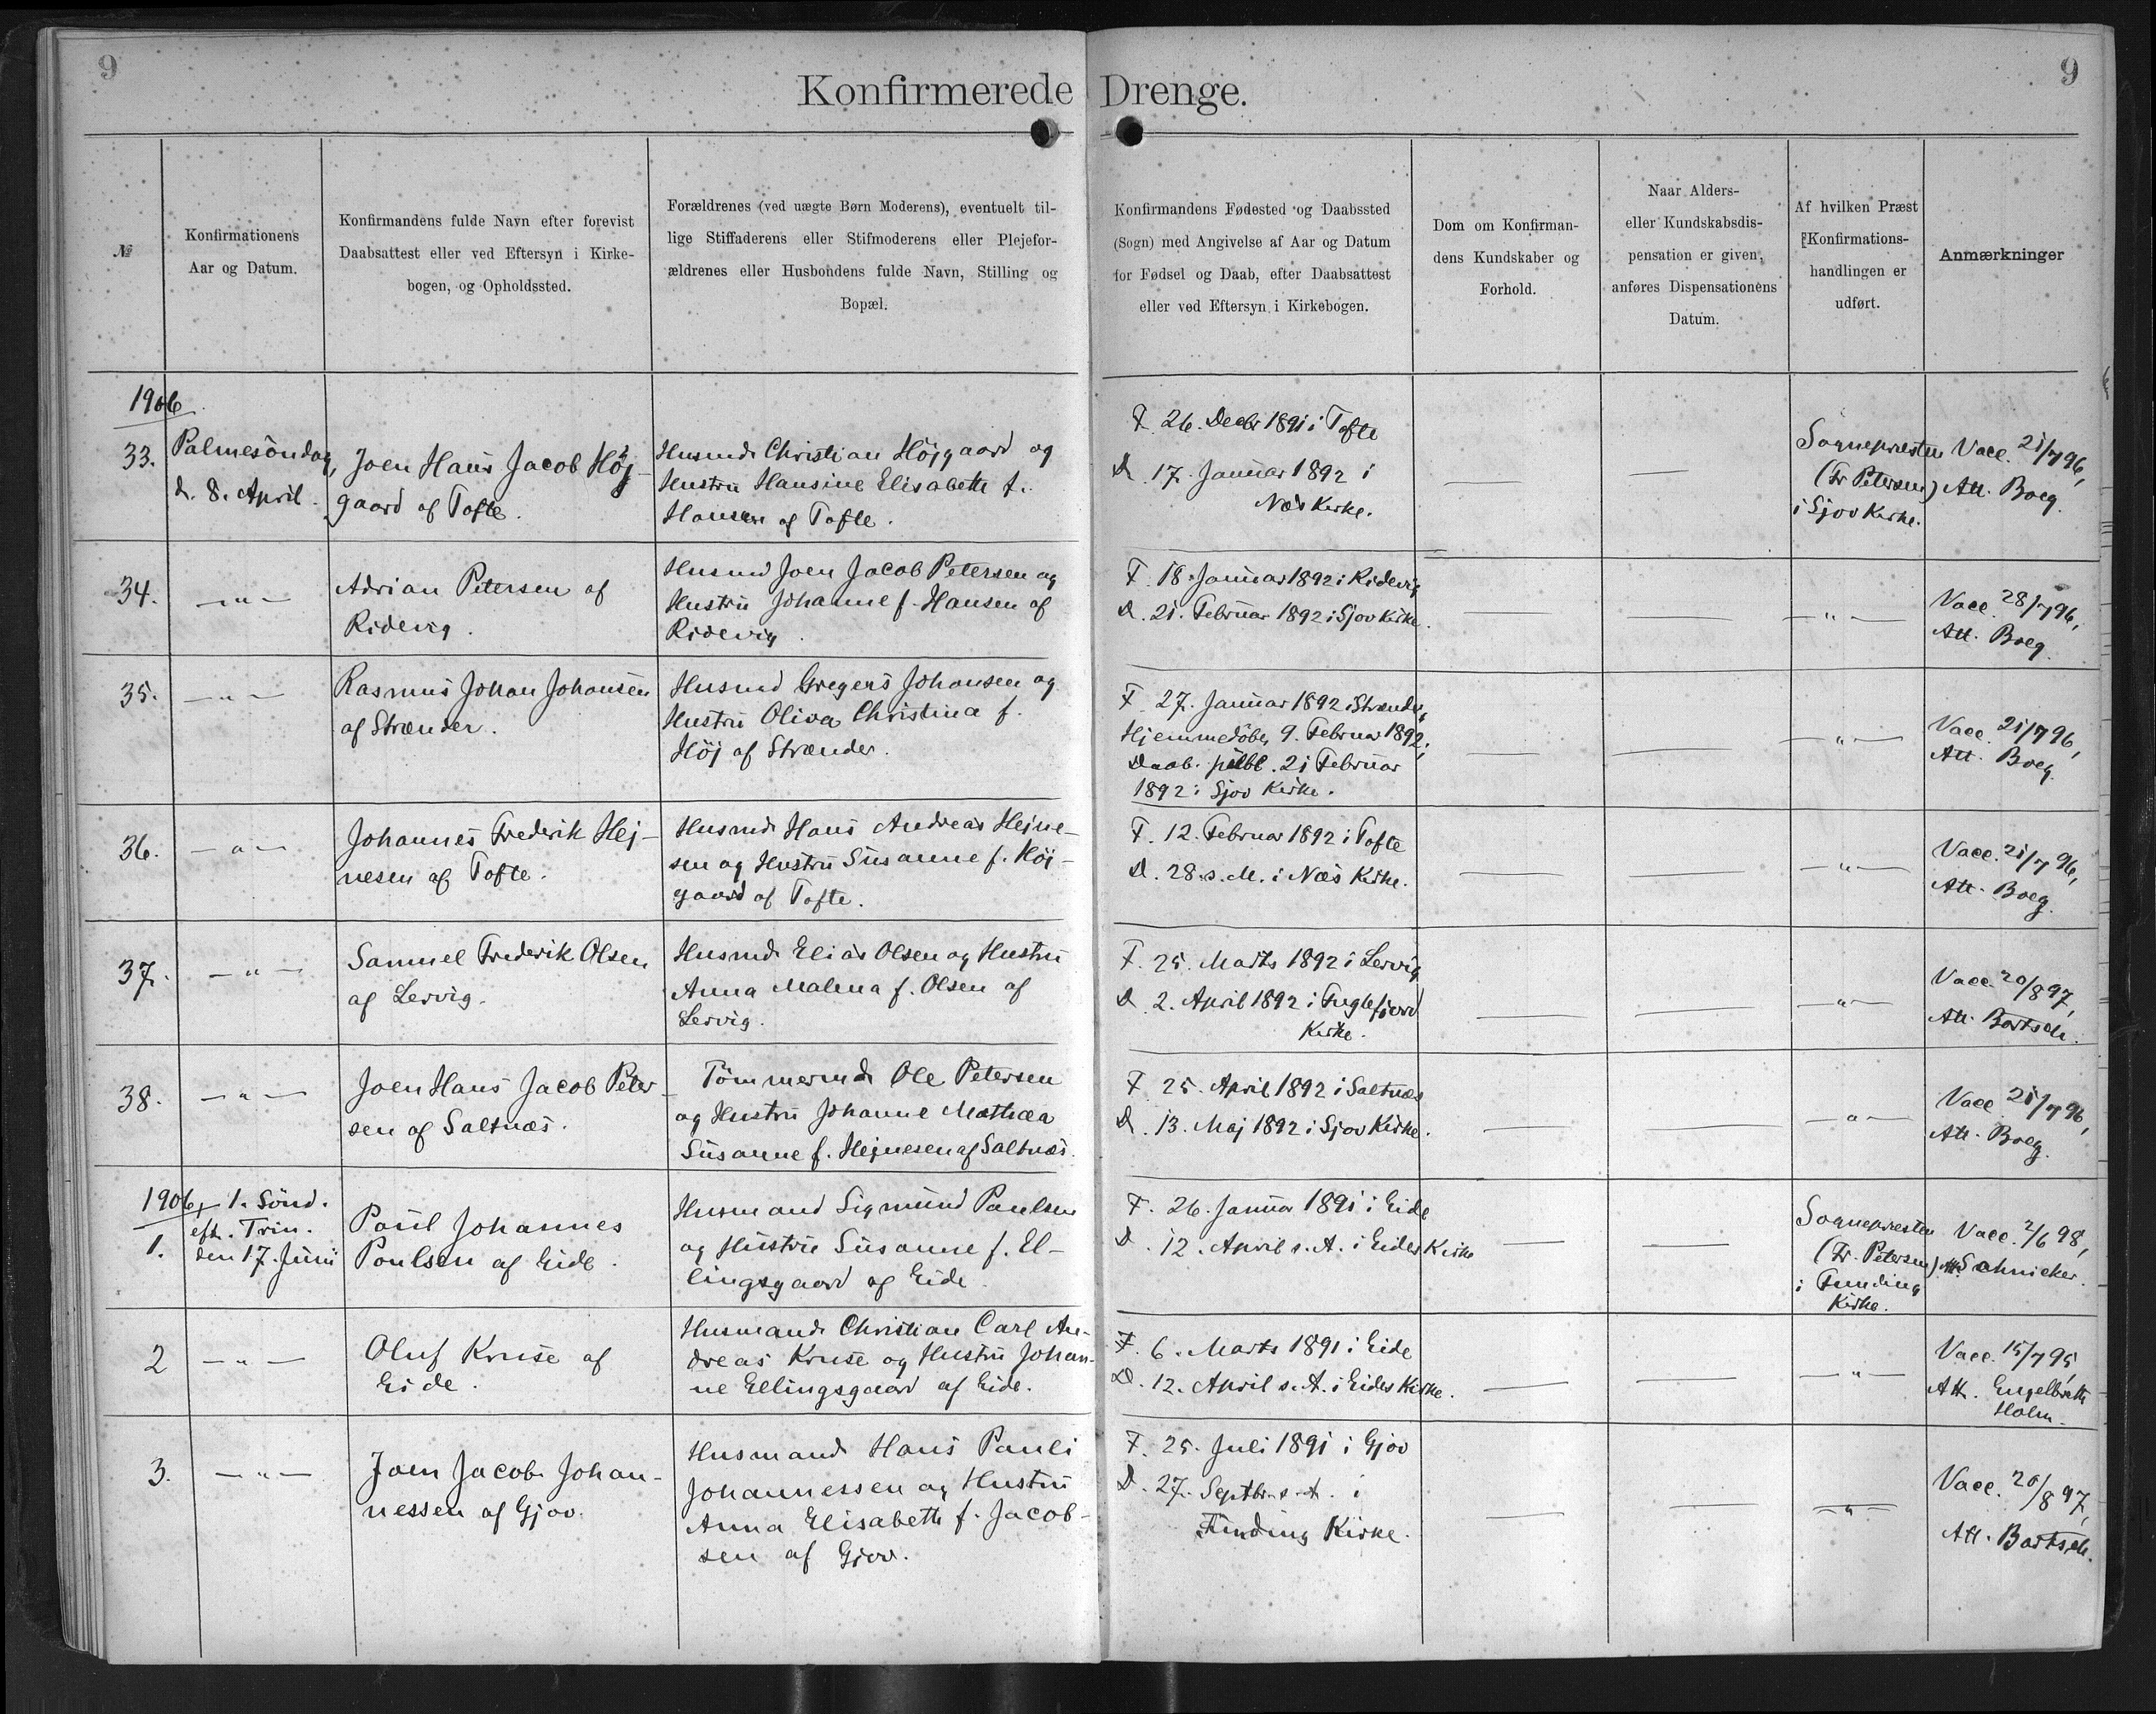 9
9
Konfirmerede Drenge.
№
Konfirmationens
Aar og Datum.
Konfirmandens fulde Navn efter forevist
Daabsattest eller ved Eftersyn i Kirke-
bogen, og Opholdssted.
Forældrenes (ved uægte Børn Moderens), eventuelt til-
lige Stiffaderens eller Stifmoderens eller Plejefor-
ældrenes eller Husbondens fulde Navn, Stilling og
Bopæl.
Konfirmandens Fødested og Daabssted
(Sogn) med Angivelse af Aar og Datum
for Fødsel og Daab, efter Daabsattest
eller ved Eftersyn i Kirkebogen.
Dom om Konfirman-
dens Kundskaber og
Forhold.
Naar Alders-
eller Kundskabsdis-
pensation er given,
anføres Dispensationens
Datum.
Af hvilken Præst
Konfirmations-
handlingen er
udført.
Anmærkninger
1906
33.
Palmesöndag,
d. 8. April.
Joen Hans Jacob Höj-
gaard af Tofte.
Husmd. Christian Höjgaard og
Hustru Hansine Elisabeth f.
Hansen af Tofte.
F. 26. Decbr 1891 i Tofte
D. 17. Januar 1892 i
Næs Kirke.
—
—
Sognepræsten
(Fr Petersen)
i Sjov Kirke.
Vacc. 21/7 96,
Att. Boeg.
34.
— " —
Adrian Petersen af
Ridevig.
Husmd Joen Jacob Petersen og
Hustru Johanne f. Hansen af
Ridevig.
F. 18. Januar 1892 i Ridevig
D. 21. Februar 1892 i Sjov Kirke.
—
—
— " —
Vacc. 28/7 96,
Att. Boeg.
35.
— " —
Rasmus Johan Johansen
af Strænder.
Husmd Gregers Johansen og
Hustru Oliva Christina f.
Höj af Strænder.
F. 27. Januar 1892 i Strænder,
Hjemmedöbt 9. Februar 1892,
Daab. publ. 21 Februar
1892 i Sjov Kirke.
—
—
— " —
Vacc. 21/7 96,
Att. Boeg.
36.
— " —
Johannes Frederik Hej-
nesen af Tofte.
Husmd. Hans Andreas Hejne-
sen og Hustru Susanne f. Höj-
gaard af Tofte.
F. 12. Februar 1892 i Tofte
D. 28. s. M. i Næs Kirke.
—
—
— " —
Vacc. 21/7 96,
Att. Boeg.
37.
— " —
Samuel Frederik Olsen
af Lervig.
Husmd. Elias Olsen og Hustru
Anna Malena f. Olsen af
Lervig.
F. 25. Marts 1892 i Lervig
D. 2. April 1892 i Fuglefjord
Kirke.
—
—
— " —
Vacc. 20/8 97,
Att. Bartsch.
38.
— " —
Joen Hans Jacob Peter-
sen af Saltnæs.
Tömmermd. Ole Petersen
og Hustru Johanne Mathæa
Susanne f. Hejnesen af Saltnæs.
F. 25. April 1892 i Saltnæs
D. 13. Maj 1892 i Sjov Kirke.
—
—
— " —
Vacc. 21/7 96,
Att. Boeg.
1906,
1.
1. Sönd.
eft. Trin.
den 17. Juni
Paul Johannes
Poulsen af Eide.
Husmand Sigmund Paulsen
og Hustru Susanne f. El-
lingsgaard af Eide.
F. 26. Januar 1891 i Eide
D. 12. April s. A. i Eides Kirke
—
—
Sognepræsten
(Fr. Petersen)
i Funding
Kirke.
Vacc. 2/6 98,
Att. Schnicker.
2
— " —
Oluf Kruse af
Eide.
Husmand Christian Carl An-
dreas Kruse og Hustru Johan-
ne Ellingsgaard af Eide.
F. 6. Marts 1891 i Eide
D. 12. April s. A. i Eides Kirke.
—
—
— " —
Vacc. 15/7 95,
Att. Engelbreth
Holm.
3.
— " —
Joen Jacob Johan-
nessen af Gjov.
Husmand Hans Pauli
Johannessen og Hustru
Anna Elisabeth f. Jacob-
sen af Gjov.
F. 25. Juli 1891 i Gjov
D. 27. Septbr. s. A. i
Funding Kirke.
—
—
— " —
Vacc. 20/8 97,
Att. Bartsch.